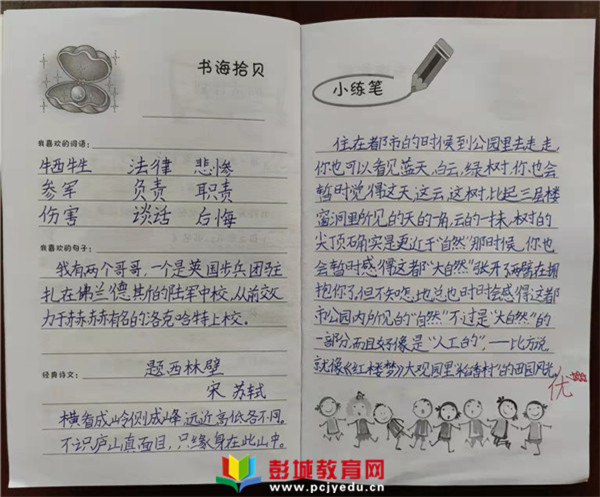 书海拾贝
我喜欢的词语:
牺牲 法律 悲惨
参军 负责 职责
伤害 谈话 后悔
我喜欢的句子:
我有两个哥哥,一个是英国步兵团驻
扎在佛兰德其怕的陆军中校,从前效
力于赫赫有名的洛克哈特上校。
经典诗文:
题西林壁
宋 苏轼
横看成岭侧成峰,远近高低各不同。
不识庐山真面目,只缘身在此山中。
小练笔
住在都市的时候到公园里去走走,
你也可以看见蓝天,白云,绿树,你也会
暂时觉得这天,这云,这树,比起三层楼
窗洞里所见的天的一角,云的一抹,树的
尖顶确实是更近于"自然"那时候,你也
会暂时感得这都"大自然"张开了两臂在拥
抱你了,但不知怎地总也时时会感得这都
市公园内所见的"自然"不过是"大自然"的
一部分,而且好像是"人工的",——比方说
就像《红楼梦》大观园里"稻香村"的田园风光
优
彭城教育网
www.pcjyedu.cn